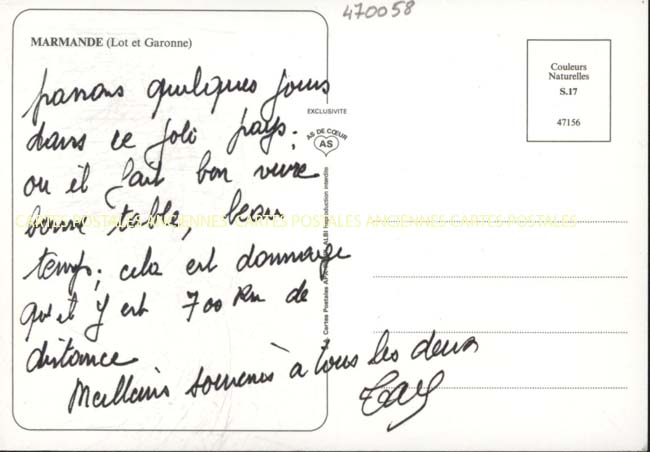 470058
MARMANDE (Lot et Garonne)
passons quelques jours
dans ce joli pays.
ou il fait bon vivre
bonne table, beau
temps, cela est dommage
qu'il y est 700 Km de
distance
Meilleurs souvenirs à tous les deux
EXCLUSIVITE
AS DE CŒUR
AS
Cartes Postales APA-POUX, ALBI Reproduction interdite
Couleurs
Naturelles
S.17
47156
CARTES POSTALES ANCIENNES CARTES POSTALES ANCIENNES CARTES POSTALES